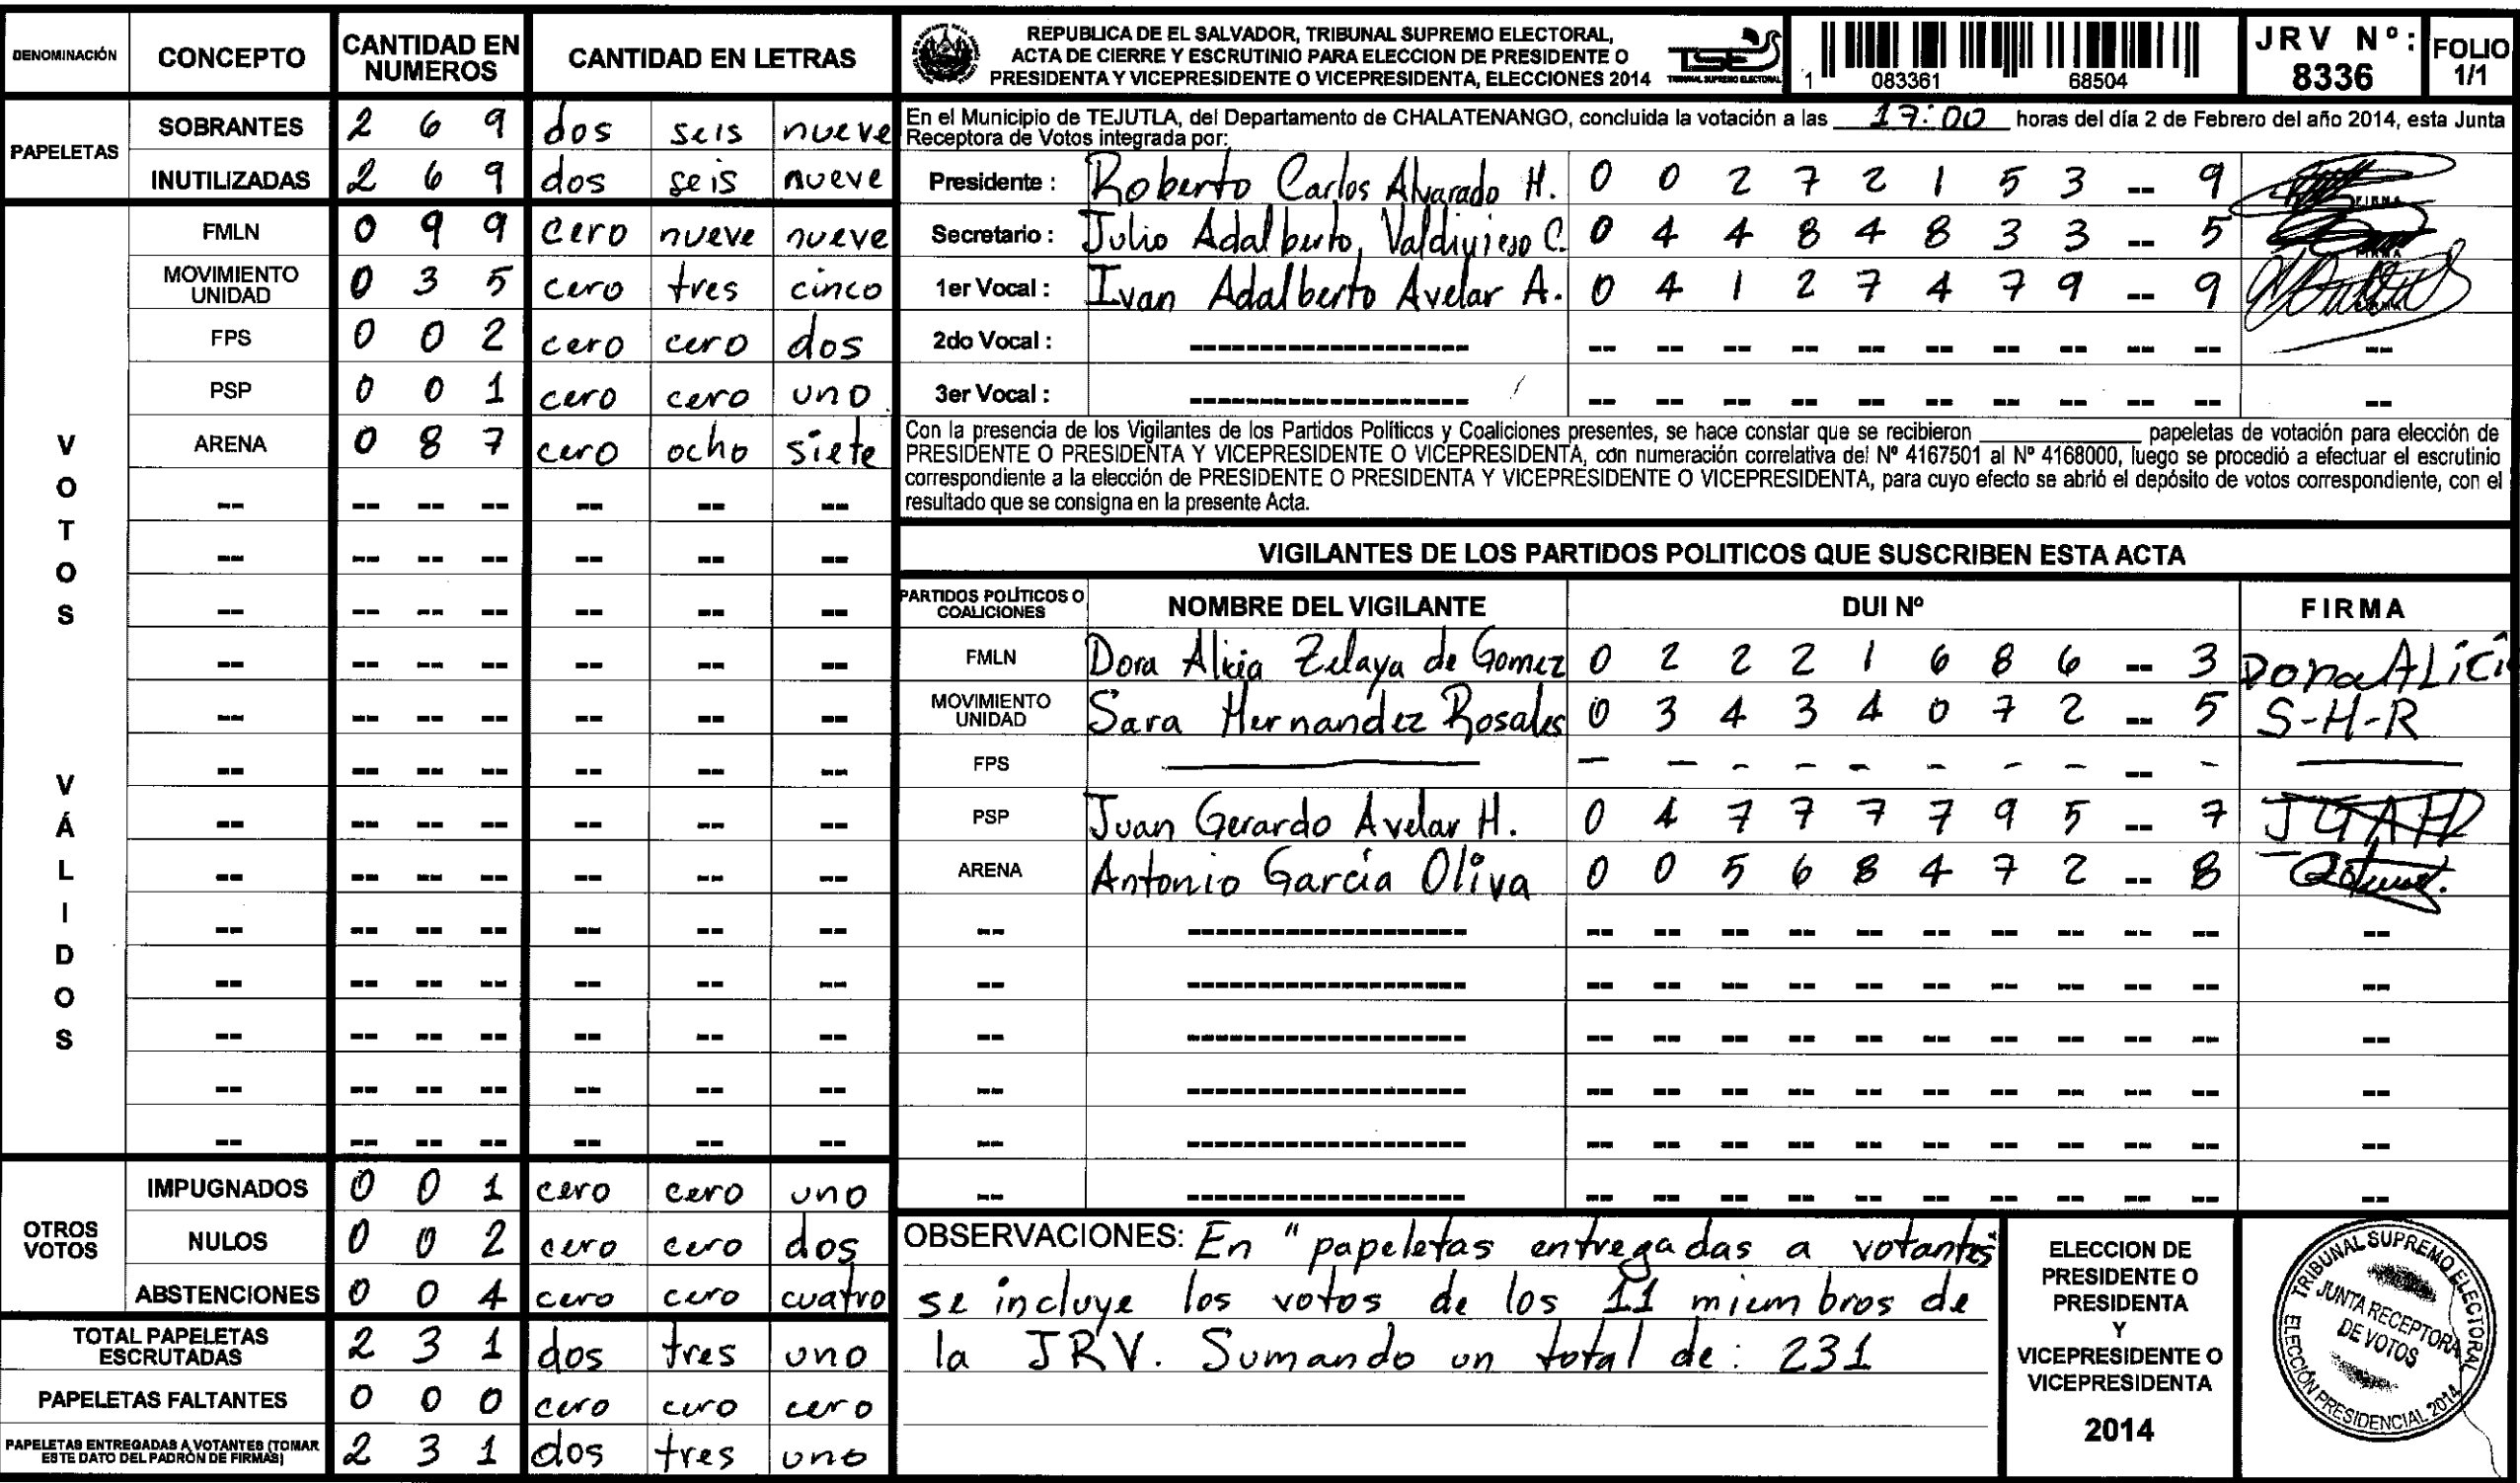 DENOMINACIÓN CONCEPTO CANTIDAD EN NUMEROS CANTIDAD EN LETRAS
PAPELETAS
SOBRANTES 2 6 9 dos seis nueve
INUTILIZADAS 2 6 9 dos seis nueve
VOTOS VÁLIDOS
FMLN 0 9 9 cero nueve nueve
MOVIMIENTO UNIDAD 0 3 5 cero tres cinco
FPS 0 0 2 cero cero dos
PSP 0 0 1 cero cero uno
ARENA 0 8 7 cero ocho siete
OTROS VOTOS
IMPUGNADOS 0 0 1 cero cero uno
NULOS 0 0 2 cero cero dos
ABSTENCIONES 0 0 4 cero cero cuatro
TOTAL PAPELETAS ESCRUTADAS 2 3 1 dos tres uno
PAPELETAS FALTANTES 0 0 0 cero cero cero
PAPELETAS ENTREGADAS A VOTANTES (TOMAR ESTE DATO DEL PADRÓN DE FIRMAS) 2 3 1 dos tres uno
REPUBLICA DE EL SALVADOR, TRIBUNAL SUPREMO ELECTORAL,
ACTA DE CIERRE Y ESCRUTINIO PARA ELECCION DE PRESIDENTE O
PRESIDENTA Y VICEPRESIDENTE O VICEPRESIDENTA, ELECCIONES 2014
TSE
TRIBUNAL SUPREMO ELECTORAL
1 083361 68504
JRV Nº: 8336
FOLIO 1/1
En el Municipio de TEJUTLA, del Departamento de CHALATENANGO, concluida la votación a las 17:00 horas del día 2 de Febrero del año 2014, esta Junta
Receptora de Votos integrada por:
Presidente : Roberto Carlos Alvarado H. 0 0 2 7 2 1 5 3 -- 9 FIRMA
Secretario : Julio Adalberto, Valdivieso C. 0 4 4 8 4 8 3 3 -- 5 FIRMA
1er Vocal : Ivan Adalberto Avelar A. 0 4 1 2 7 4 7 9 -- 9
2do Vocal :
3er Vocal :
Con la presencia de los Vigilantes de los Partidos Políticos y Coaliciones presentes, se hace constar que se recibieron ________ papeletas de votación para elección de
PRESIDENTE O PRESIDENTA Y VICEPRESIDENTE O VICEPRESIDENTA, con numeración correlativa del Nº 4167501 al Nº 4168000, luego se procedió a efectuar el escrutinio
correspondiente a la elección de PRESIDENTE O PRESIDENTA Y VICEPRESIDENTE O VICEPRESIDENTA, para cuyo efecto se abrió el depósito de votos correspondiente, con el
resultado que se consigna en la presente Acta.
VIGILANTES DE LOS PARTIDOS POLITICOS QUE SUSCRIBEN ESTA ACTA
PARTIDOS POLÍTICOS O COALICIONES NOMBRE DEL VIGILANTE DUI Nº FIRMA
FMLN Dora Alicia Zelaya de Gomez 0 2 2 2 1 6 8 6 -- 3 Dora ALici
MOVIMIENTO UNIDAD Sara Hernandez Rosales 0 3 4 3 4 0 7 2 -- 5 S-H-R
FPS
PSP Juan Gerardo Avelar H. 0 4 7 7 7 7 9 5 -- 7 JGAH
ARENA Antonio García Oliva 0 0 5 6 8 4 7 2 -- 8
OBSERVACIONES: En "papeletas entregadas a votantes"
se incluye los votos de los 11 miembros de
la JRV. Sumando un total de: 231
ELECCION DE
PRESIDENTE O
PRESIDENTA
Y
VICEPRESIDENTE O
VICEPRESIDENTA
2014
TRIBUNAL SUPREMO ELECTORAL
JUNTA RECEPTORA
DE VOTOS
ELECCIÓN PRESIDENCIAL 2014